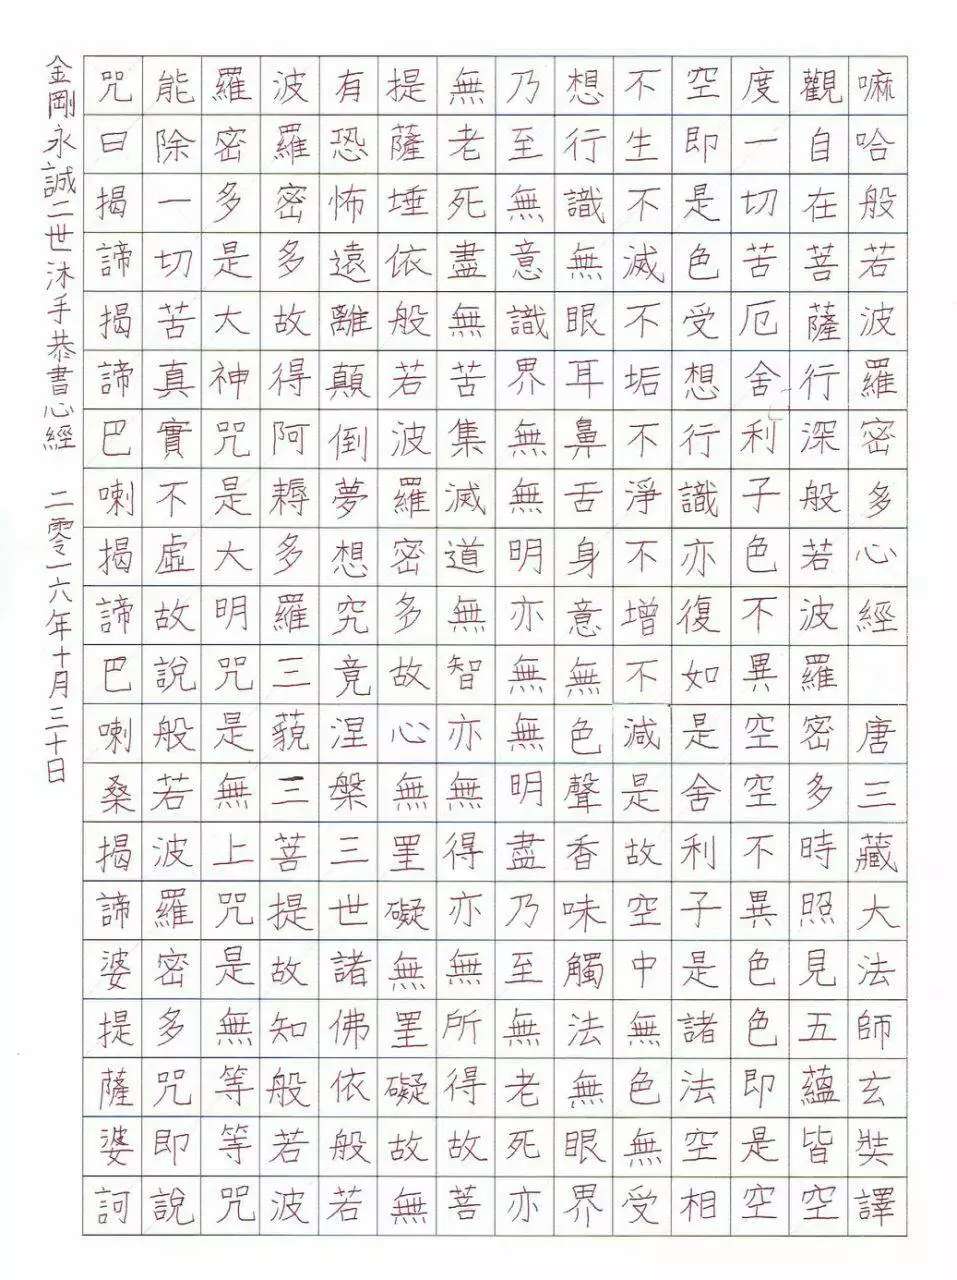 嘛哈般若波羅密多心經　唐三藏大法師玄奘譯
觀自在菩薩行深般若波羅密多時照見五蘊皆空
度一切苦厄舍利子色不異空空不異色色即是空
空即是色受想行識亦復如是舍利子是諸法空相
不生不滅不垢不淨不增不減是故空中無色無受
想行識無眼耳鼻舌身意無色聲香味觸法無眼界
乃至無意識界無無明亦無無明盡乃至無老死亦
無老死盡無苦集滅道無智亦無得亦無所得故菩
提薩埵依般若波羅密多故心無罣礙無罣礙故無
有恐怖遠離顛倒夢想究竟涅槃三世諸佛依般若
波羅密多故得阿耨多羅三藐三菩提故知般若波
羅密多是大神咒是大明咒是無上咒是無等等咒
能除一切苦真實不虛故說般若波羅密多咒即說
咒曰揭諦揭諦巴喇揭諦巴喇桑揭諦婆提薩婆訶
金剛永誠二世沐手恭書心經　二零一六年十月三十日